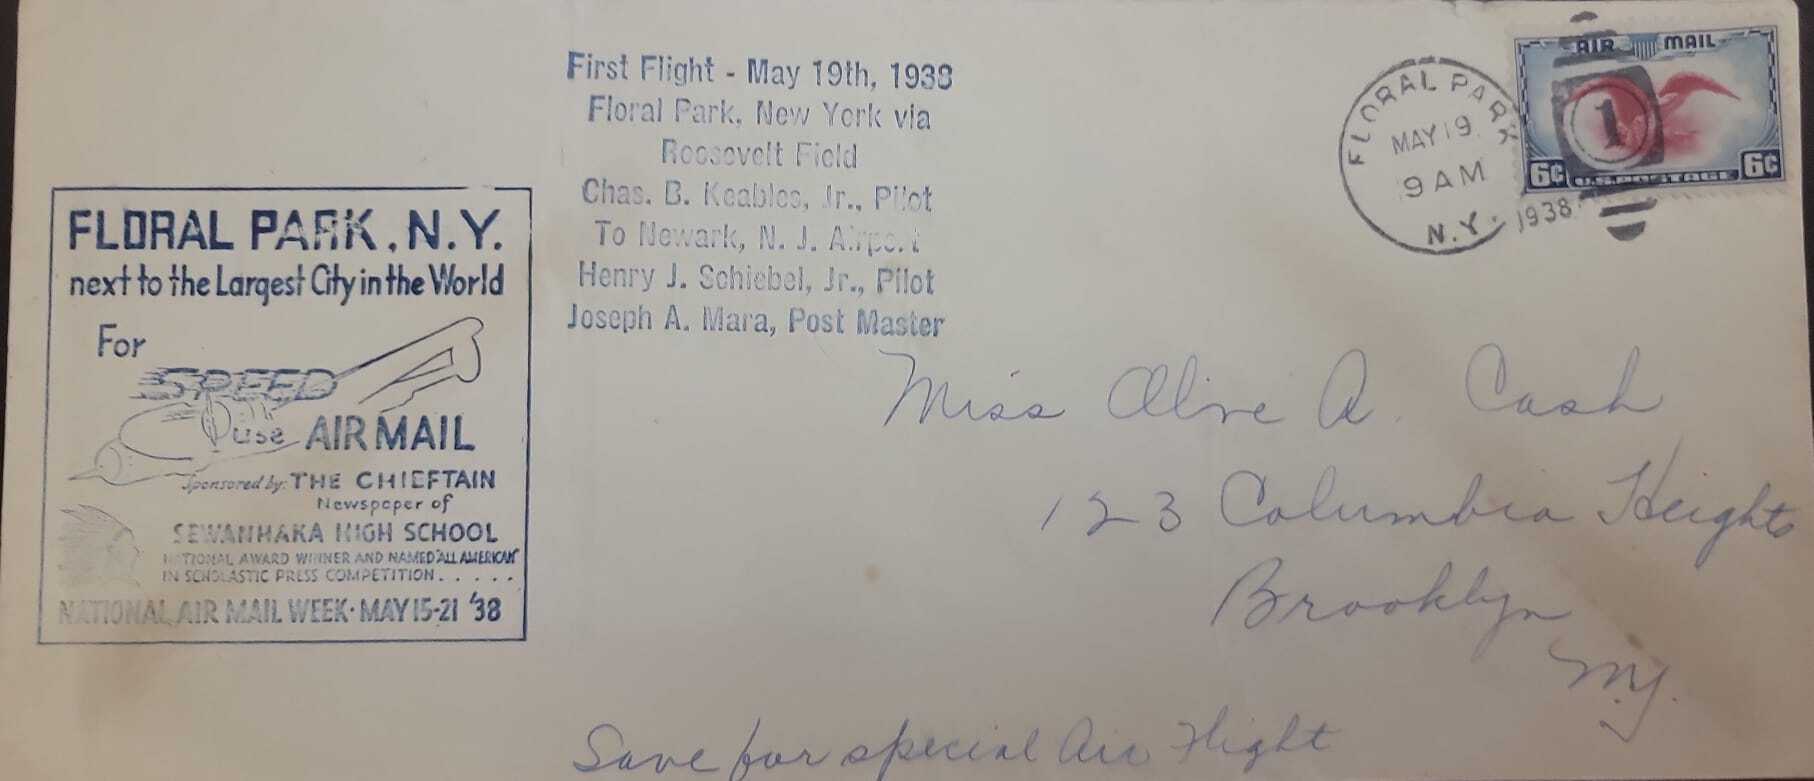 First Flight - May 19th, 1938
Floral Park, New York via
Roosevelt Field
Chas. B. Keables, Jr., Pilot
To Newark, N. J. Airport
Henry J. Schiebel, Jr., Pilot
Joseph A. Mara, Post Master
FLORAL PARK
MAY 19
9 AM
N.Y. 1938
AIR MAIL
1
6¢ U.S. POSTAGE 6¢
FLORAL PARK, N.Y.
next to the Largest City in the World
For
SPEED
use AIR MAIL
Sponsored by: THE CHIEFTAIN
Newspaper of
SEWANHAKA HIGH SCHOOL
NATIONAL AWARD WINNER AND NAMED "ALL AMERICAN"
IN SCHOLASTIC PRESS COMPETITION.....
NATIONAL AIR MAIL WEEK · MAY 15-21 '38
Miss Olive A. Cash
123 Columbia Heights
Brooklyn
N.Y.
Save for special Air Flight